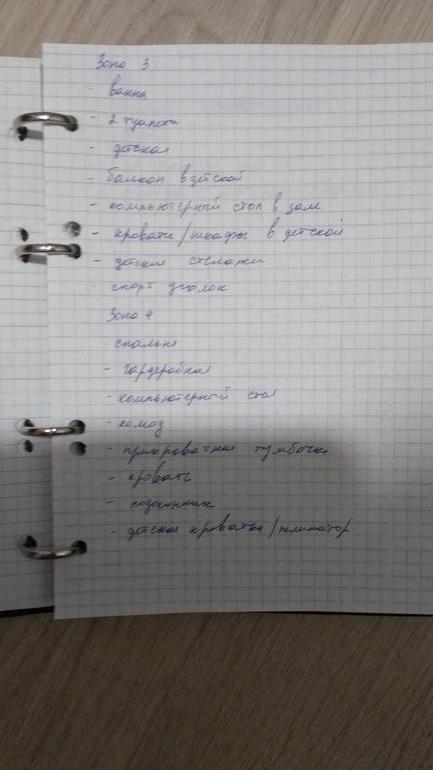 Зона 3
- ванны
- 2 туалета
- детская
- балкон в детской
- компьютерный стол в зале
- кровати/шкафы в детской
- детские стелажи
спорт уголок
Зона 4
- спальня
- гардеробная
- компьютерный стол
- комод
- прикроватная тумбочка
- кровать
- подоконник
- детская кроватка/